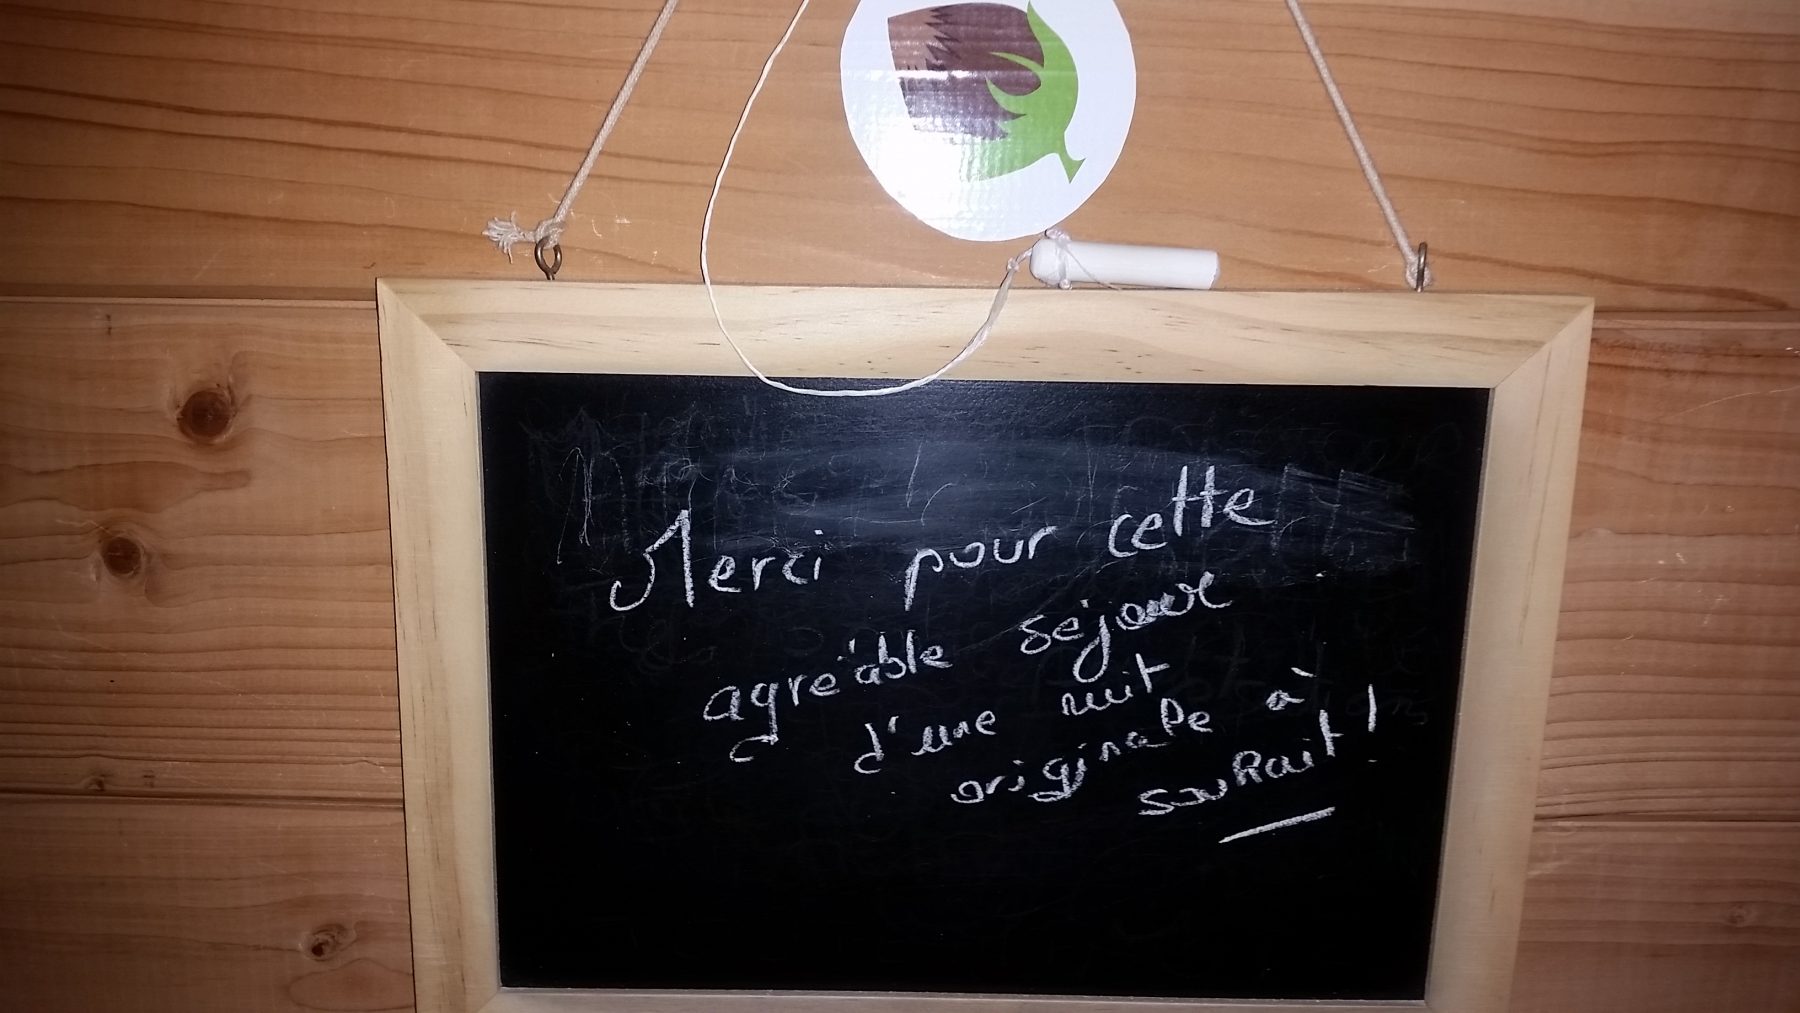 Merci pour cette
agréable séjour
d'une nuit
originale à
souhait !